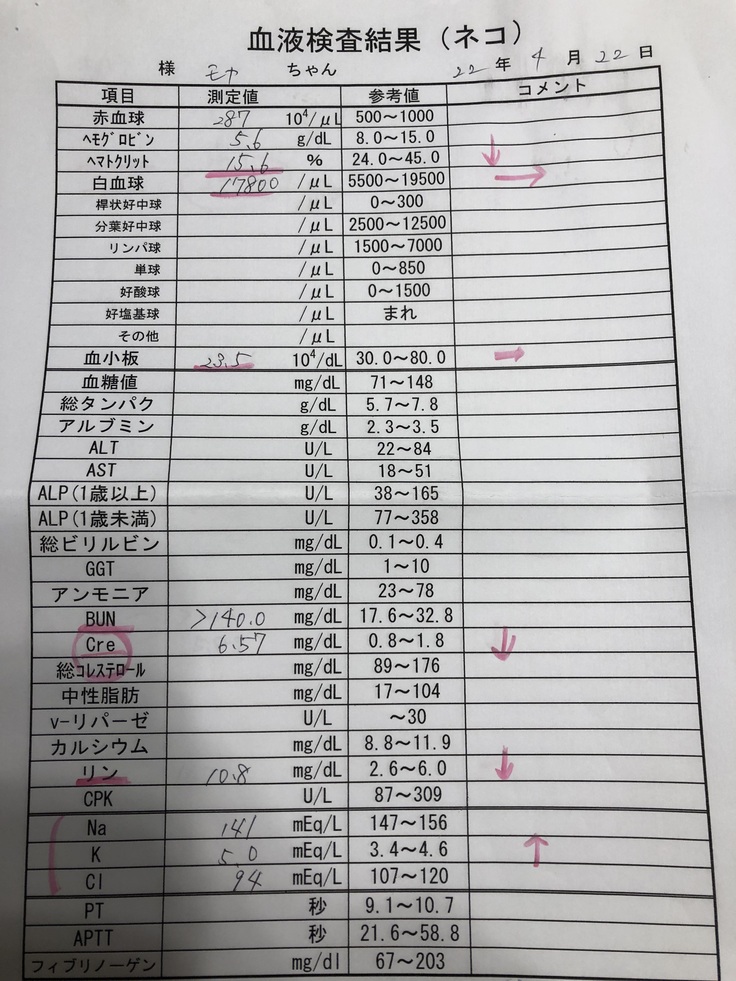 血液検査結果（ネコ）
様 モヤ ちゃん 22年 4月 22日
項目 測定値 参考値 コメント
赤血球 287 10⁴/μL 500〜1000
ﾍﾓｸﾞﾛﾋﾞﾝ 5.6 g/dL 8.0〜15.0
ﾍﾏﾄｸﾘｯﾄ 15.6 % 24.0〜45.0 ↓
白血球 17800 /μL 5500〜19500 →
桿状好中球 /μL 0〜300
分葉好中球 /μL 2500〜12500
リンパ球 /μL 1500〜7000
単球 /μL 0〜850
好酸球 /μL 0〜1500
好塩基球 /μL まれ
その他 /μL
血小板 23.5 10⁴/dL 30.0〜80.0 →
血糖値 mg/dL 71〜148
総タンパク g/dL 5.7〜7.8
アルブミン g/dL 2.3〜3.5
ALT U/L 22〜84
AST U/L 18〜51
ALP(1歳以上) U/L 38〜165
ALP(1歳未満) U/L 77〜358
総ビリルビン mg/dL 0.1〜0.4
GGT U/L 1〜10
アンモニア mg/dL 23〜78
BUN >140.0 mg/dL 17.6〜32.8
Cre 6.57 mg/dL 0.8〜1.8 ↓
総ｺﾚｽﾃﾛｰﾙ mg/dL 89〜176
中性脂肪 mg/dL 17〜104
v-リパーゼ U/L 〜30
カルシウム mg/dL 8.8〜11.9
リン 10.8 mg/dL 2.6〜6.0 ↓
CPK U/L 87〜309
Na 141 mEq/L 147〜156
K 5.0 mEq/L 3.4〜4.6 ↑
Cl 94 mEq/L 107〜120
PT 秒 9.1〜10.7
APTT 秒 21.6〜58.8
フィブリノーゲン mg/dl 67〜203